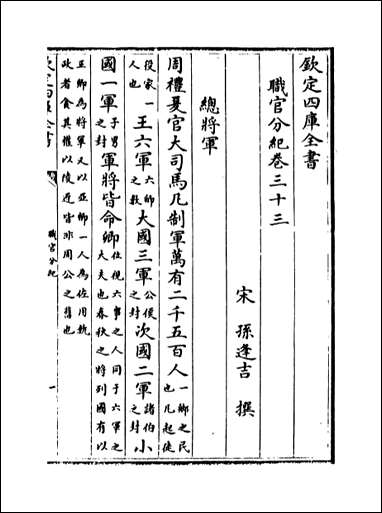 欽定四庫全書
職官分紀卷三十三
宋 孫逢吉 撰
總將軍
周禮夏官大司馬凡制軍萬有二千五百人一鄉之民也凡起徒
役家一人也王六軍六師之數大國三軍公侯之封次國二軍諸伯之封小
國一軍子男之封軍將皆命卿位視六事之人同于六軍之大夫也春秋之將列國有以
正卿為將軍又以亞卿一人為佐用執政者食其權以陵近皆非周公之舊也
欽定四庫全書
職官分紀
一